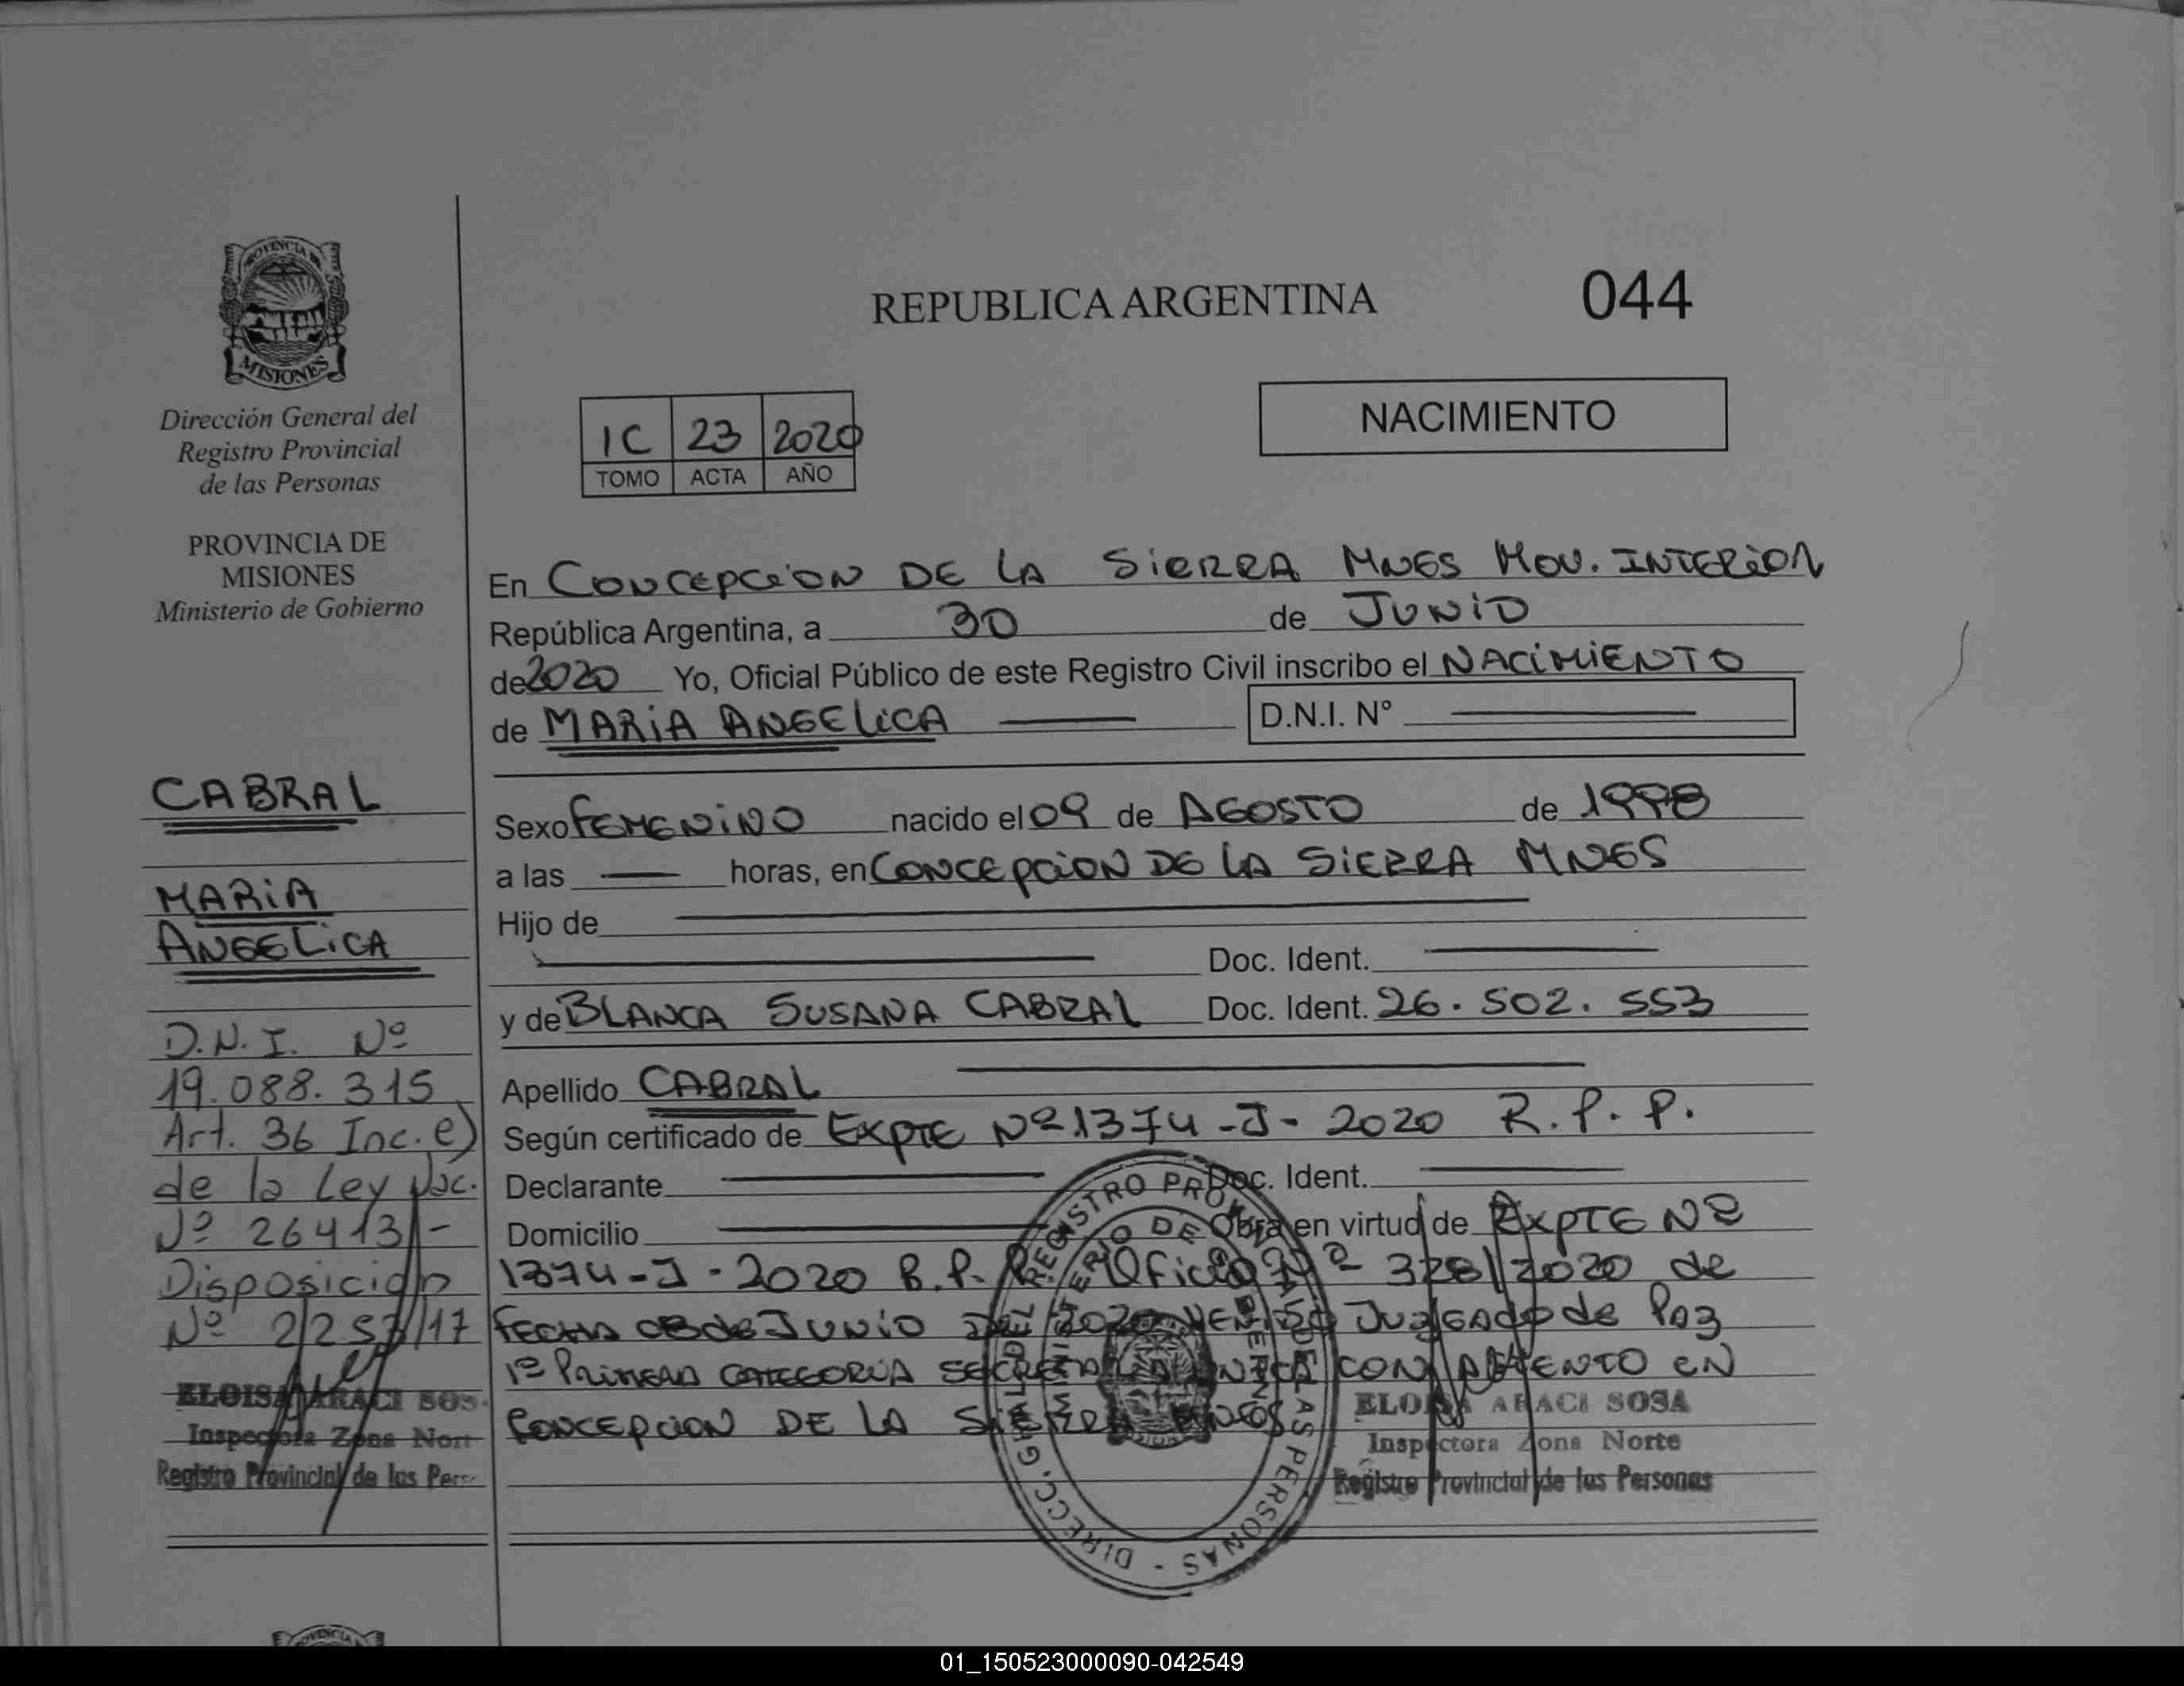 PROVINCIA DE
MISIONES
Dirección General del
Registro Provincial
de las Personas
PROVINCIA DE
MISIONES
Ministerio de Gobierno
CABRAL
MARiA
ANGELiCA
D.N.I. Nº
19.088.315
Art. 36 Inc. e)
de la Ley
Nº 26413/-
Disposición
Nº
Inspectora Zona Nort
Registro Provincial de las Pers
REPUBLICA ARGENTINA
044
NACIMIENTO
1C 23 2020
TOMO ACTA AÑO
En CONCEPCiON DE LA SiERRA MNES MOV. INTERiOR
República Argentina, a 30 de JUNiO
de 2020 Yo, Oficial Público de este Registro Civil inscribo el NACiMiENTO
de MARiA ANGELiCA D.N.I. N°
Sexo FEMENiNO nacido el 09 de AGOSTO de 1998
a las horas, en CONCEPCiON DE LA SiERRA MNES
Hijo de
Doc. Ident.
y de BLANCA SUSANA CABRAL Doc. Ident. 26.502.553
Apellido CABRAL
Según certificado de EXPTE Nº 1374-J-2020 R.P.P.
Declarante Doc. Ident.
Domicilio Obra en virtud de EXPTE Nº
1374-J-2020 R.P.P. Oficio Nº 328/2020 de
FECHA 08 de JUNiO DEL 2020 JUZGADO de PAZ
1º PRiMERA CATEGORiA SECRETARiA UNICA CON ASIENTO EN
CONCEPCiON DE LA SiERRA MNES
ELOISA ARACI SOSA
Inspectora Zona Norte
Registro Provincial de las Personas
DIRECC. GRAL. DEL REGISTRO PROV. DE LAS PERSONAS
01_150523000090-042549